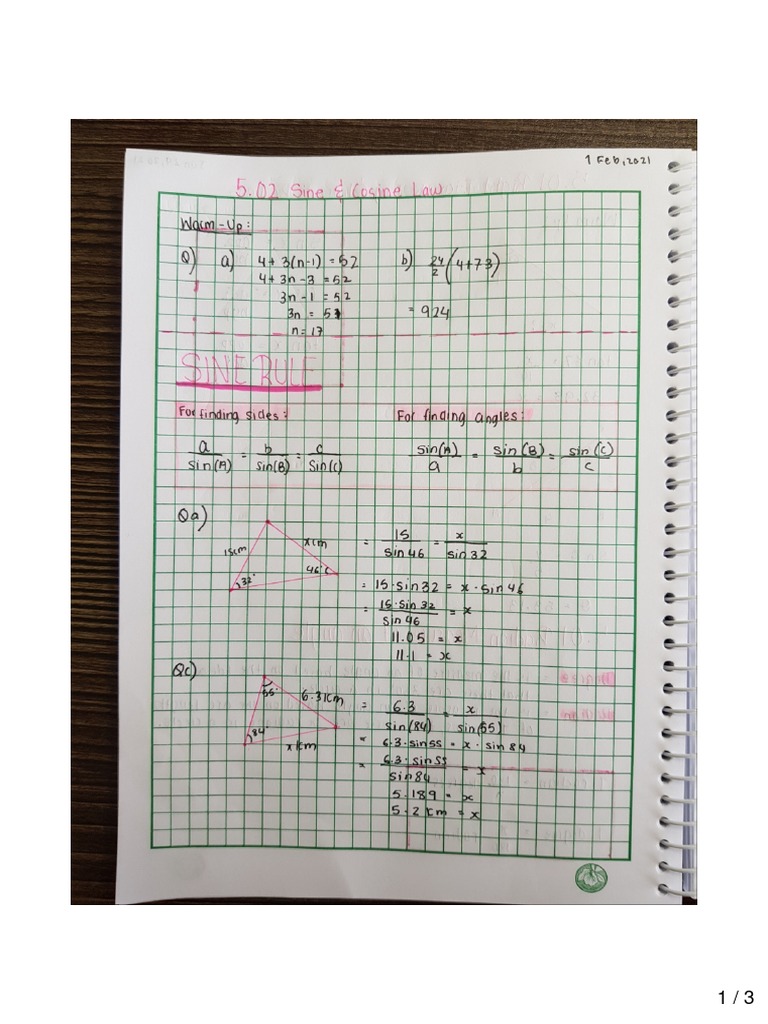 1 Feb, 2021
5.02 Sine & Cosine Law
Warm-Up:
Q) a) 4 + 3(n-1) = 52
4 + 3n - 3 = 52
3n - 1 = 52
3n = 51
n = 17
b) 24/2 (4+73)
= 924
SINE RULE
For finding sides:
a/sin(A) = b/sin(B) = c/sin(C)
For finding angles:
sin(A)/a = sin(B)/b = sin(C)/c
Qa)
15cm
xcm
32°
46°
= 15/sin46 = x/sin32
= 15·sin32 = x·sin46
= 15·sin32/sin46 = x
11.05 = x
11.1 = x
Qc)
55°
6.3cm
84°
xcm
= 6.3/sin(84) = x/sin(55)
= 6.3·sin55 = x·sin84
= 6.3·sin55/sin84 = x
5.189 = x
5.2cm = x
1 / 3